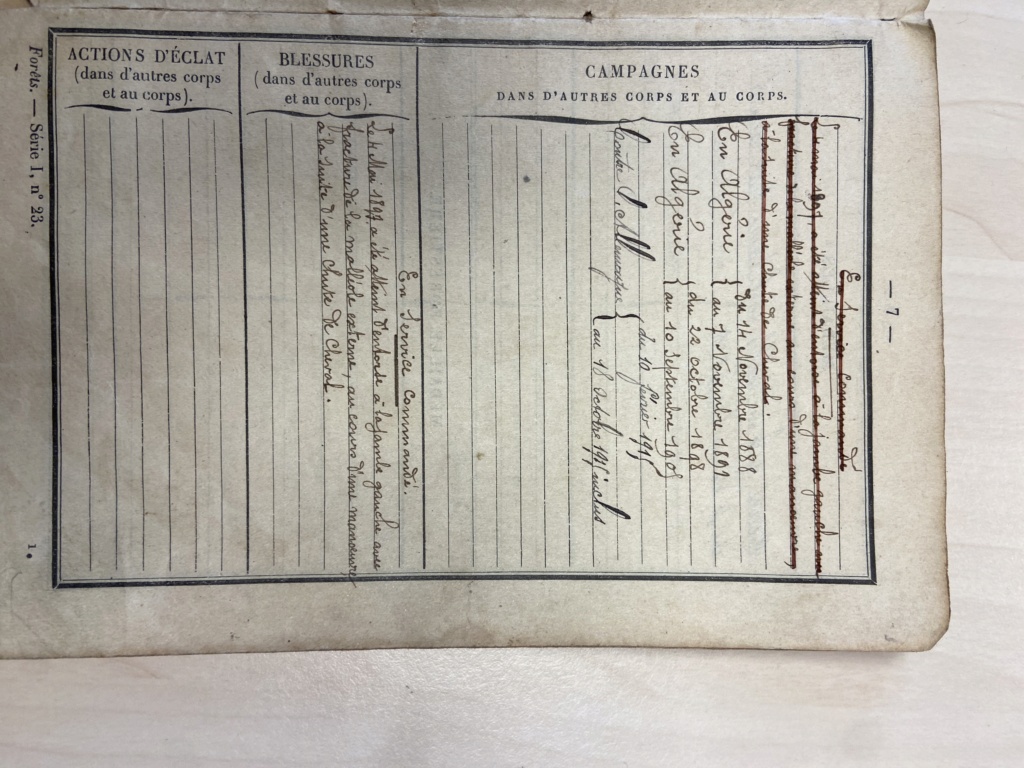 — 7 —
CAMPAGNES
DANS D'AUTRES CORPS ET AU CORPS.
En Service Commandé
mai 1897 a été atteint d'entorse à la jambe gauche avec
fracture de la malléole externe au cours d'une manoeuvre
à la suite d'une chute de Cheval.
En Algérie { du 14 Novembre 1888
au 7 Novembre
En Algérie { du 22 octobre 1898
au 10 Septembre 1905
Contre l'Allemagne { du 10 février 1915
au 18 Octobre 1915 inclus
BLESSURES
(dans d'autres corps
et au corps).
En Service Commandé.
Le 4 Mai 1897 a été atteint d'entorse à la jambe gauche avec
fracture de la malléole externe, au cours d'une manoeuvre
à la suite d'une chute de cheval.
ACTIONS D'ÉCLAT
(dans d'autres corps
et au corps).
Forêts. — Série I, n° 23.
1.